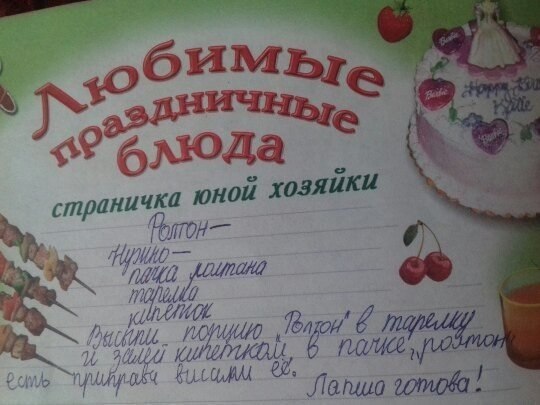 Любимые
праздничные
блюда
страничка юной хозяйки
Ролтон—
Нужно—
пачка ролтана
тарелка
кипеток
Высыпи порцию "Ролтон" в тарелку
и залей кипеткой, в пачке "роэтон"
есть приправа высыпи её.
Лапша готова!
Barbie
Barbie
Happy Birthday
Barbie